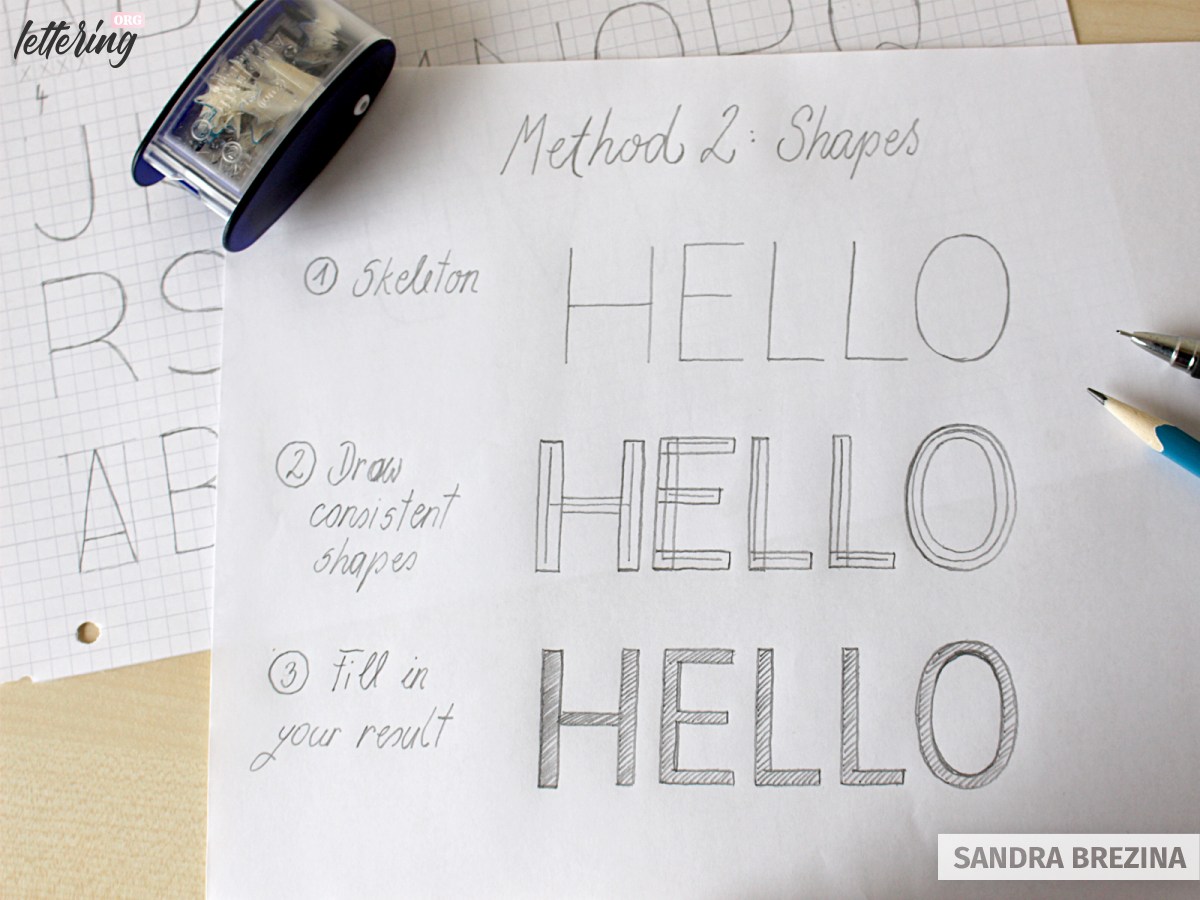 lettering
ORG
4
J
R S
A B
Method 2: Shapes
① Skeleton
HELLO
② Draw
consistent
shapes
HELLO
③ Fill in
your result
HELLO
SANDRA BREZINA